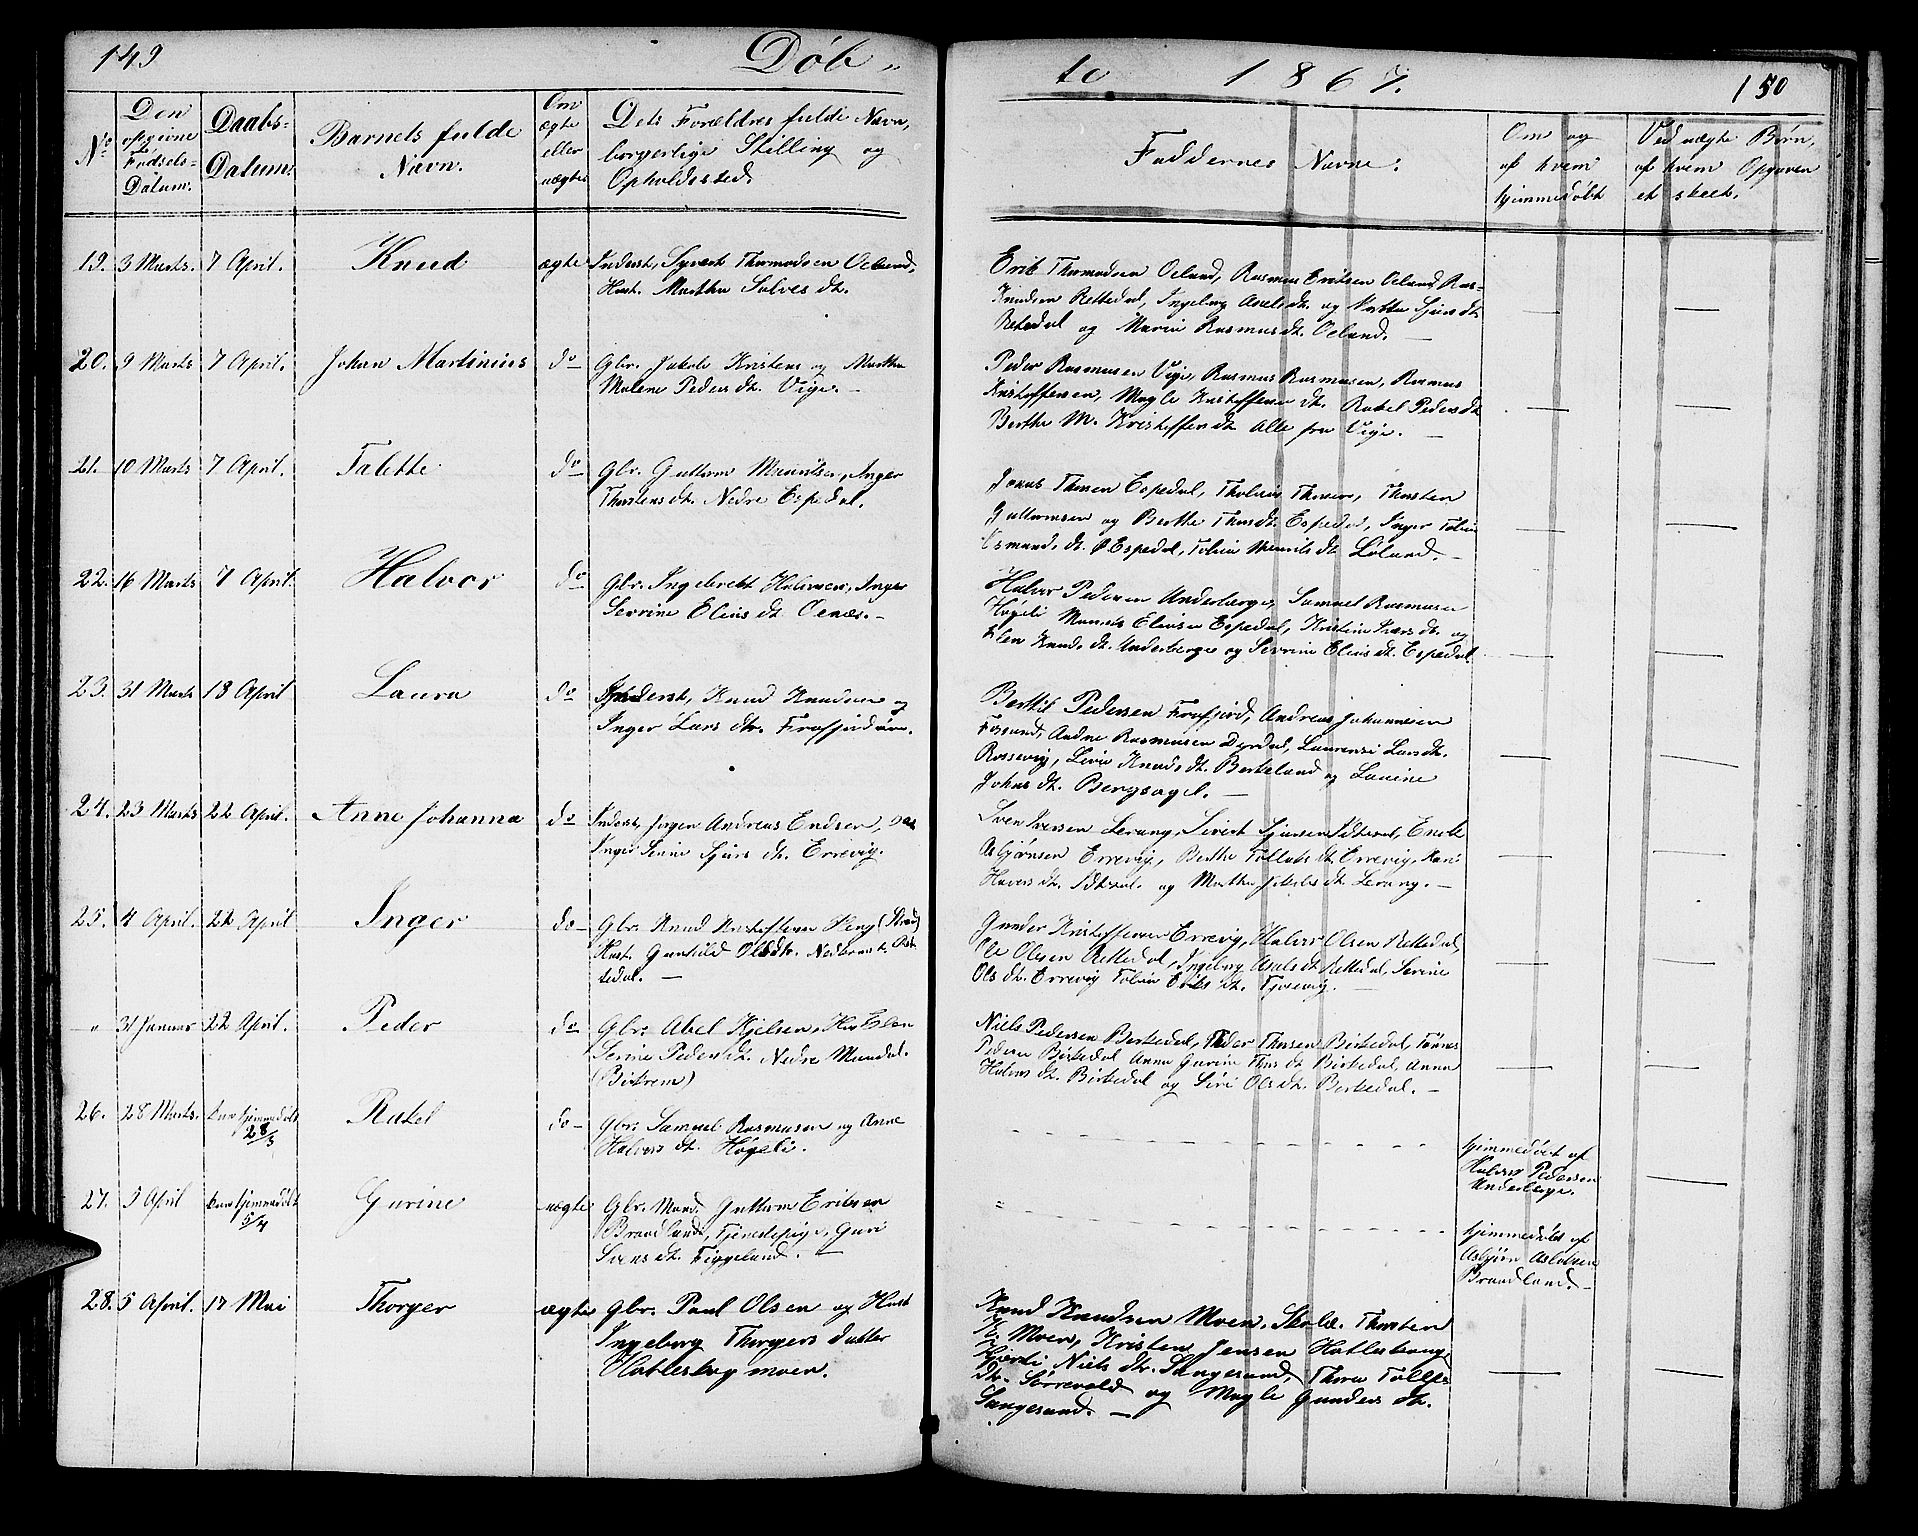 149
Døb-
te 1867.
150
No
Den opgivne Fødsels-Datum.
Daabs-Datum.
Barnets fulde Navn.
Om ægte eller uægte
Dets Forældres fulde Navn, borgerlige Stilling og Opholdssted.
Faddernes Navne.
Om og af hvem hjemmedøbt
Ved uægte Børn, af hvem Opgaven et skeet.
19. 3 Marts. 7 April. Knud ægte Inderst, Syvert Thormodsen Oeland,
Hust. Martha Salves dt.
Erik Thormodsen Oeland, Rasmus Eriksen Oeland, Ras-
Knudsen Rettedal, Ingeborg Axels dt. og
Retedal og Maria Rasmus dt. Oeland. —
20. 9 Marts 7 April. Johan Martinius do Gbr. Jakob Kristens og Martha
Malene Peders dt. Vige. —
Peder Rasmusen Vige, Rasmus Rasmusen, Rasmus
Kristoffersen, Magle Kristoffersen dt. Rakel Peders dt.
Berthe M. Kristoffer dt. Alle fra Vige. —
21. 10 Marts 7 April. Talette do Gbr. Guttorm Mauritsen, Inger
Thorstens dt. Nedre Espedal.
Jonas Thosen Espedal, Tholius Thosen, Thorsten
Guttormsen og Berthe Thos dt. Espedal, Inger Tolin
Osmund, dt. Ø Espedal, Tolin Maurits dt. Løland. —
22. 16 Marts 7 April. Halvor do Gbr. Ingebreth Halvorsen, Inger
Sevrine Elias dt. Oenæs. —
Halvor Pedersen Underberge, Samuel Rasmusen
Høgeli Mauritz Eliasen Espedal, Kristine dt. og
Elen Knuds dt. Underberge og Sevrine Elias dt. Espedal.
23. 31 Marts 18 April Laura do Inderst, Knud Knudsen og
Inger Lars dtr. Frafjordøren.
Berthil Pedersen Frafjord, Andreas Johannesen
Fossand, Andne Rasmusen Dyrdal, Laurensi Lars dt.
Rossevig, Sivie Knuds dt. Birkeland og Lauine
Johns dt. Bergsagel. —
24. 23 Marts 22 April. Anne Johanna do Inderst, Jørgen Andreas Endsen,
Inger Serine Sjurs dt. Errevig.
Sven Iversen Levang, Sivert Sjursen Idsal, Enok
Asbjørnsen Errevig, Berthe Tollaks dt. Errevig, Kari
Havers dt. Idsal. og Martha Jakobs dt. Levang. —
25. 4 April. 22 April Inger do Gbr. Knud Kristoffersen Heng (Strand)
Hust. Gunhild Ols dtr. Nedbrandt. Ret-
tedal. —
Gunder Kristoffersen Errevig, Halvor Olsen Rettedal,
Ole Olsen Rettedal, Ingeborg Axels dt. Rettedal, Serine
Ols dt. Errevig Tolin Eriks dt. Tjosevig. —
— " 31 Januar 22 April. Peder do Gbr. Abel Kjelsen, Hust Elen
Serine Peders dt. Nedre Maudal.
(Birkrem)
Niels Pedersen Birkedal, Peder Thosen Birkedal, Tønnes
Pedersen Birkedal Anna Gurine Thos dt. Birkedal, Anna
Halvors dt. Birkedal og Siri Ols dt. Birkedal. —
26. 28 Marts. Kun hjemmedøbt 28/3 Rakel do Gbr. Samuel Rasmusen og Anne
Halvors dt. Høgeli.
hjemmedøbt af
Halvor Pedersen
Underberge.
27. 5 April Kun hjemmedøbt 5/4 Gurine uægte Gbr. Mand. Guttorm Eriksen
Braadlands, Tjenestepige, Guri
Svens dt. Tiggeland. —
hjemmedøbt af
Asbjørn Aslaksen
Braadland. —
28. 5 April. 17 Mai Thorger ægte Gbr. Paul Olsen og Hust
Ingeborg Thorgers datter
Hatleskog moen.
Knud Knudsen Moen. Skolæ. Thorsten
K. Moen, Kristen Jensen Hatleskong,
Kjersti Niels dtr. Sangesand, Thora Tollefs
dtr. Sørrevold og Magle Gunders dt.
Sangesand. —